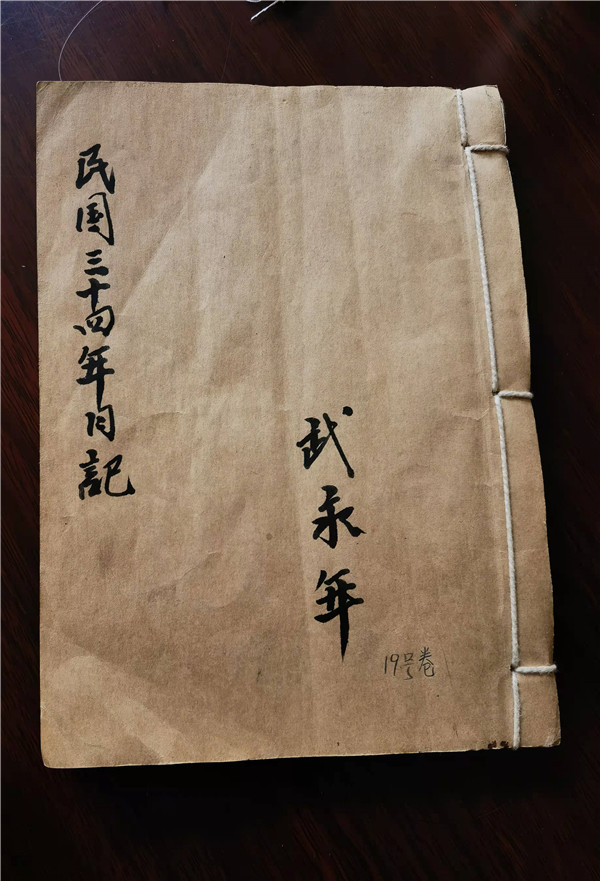 民国三十四年日記
武永年
19号卷